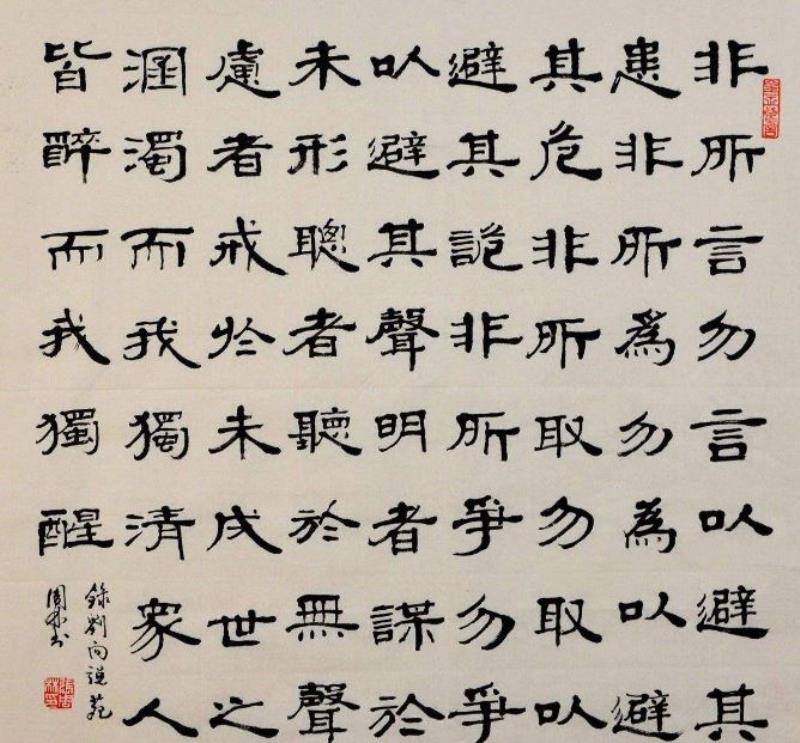 非所言勿言以避其
患非所為勿為以避
其危非所取勿取以
避其詭非所爭勿爭
以避其聲明者謀於
未形聰者聽於無聲
慮者戒於未成世之
溷濁而我獨清眾人
皆醉而我獨醒
錄劉向說苑
周林书